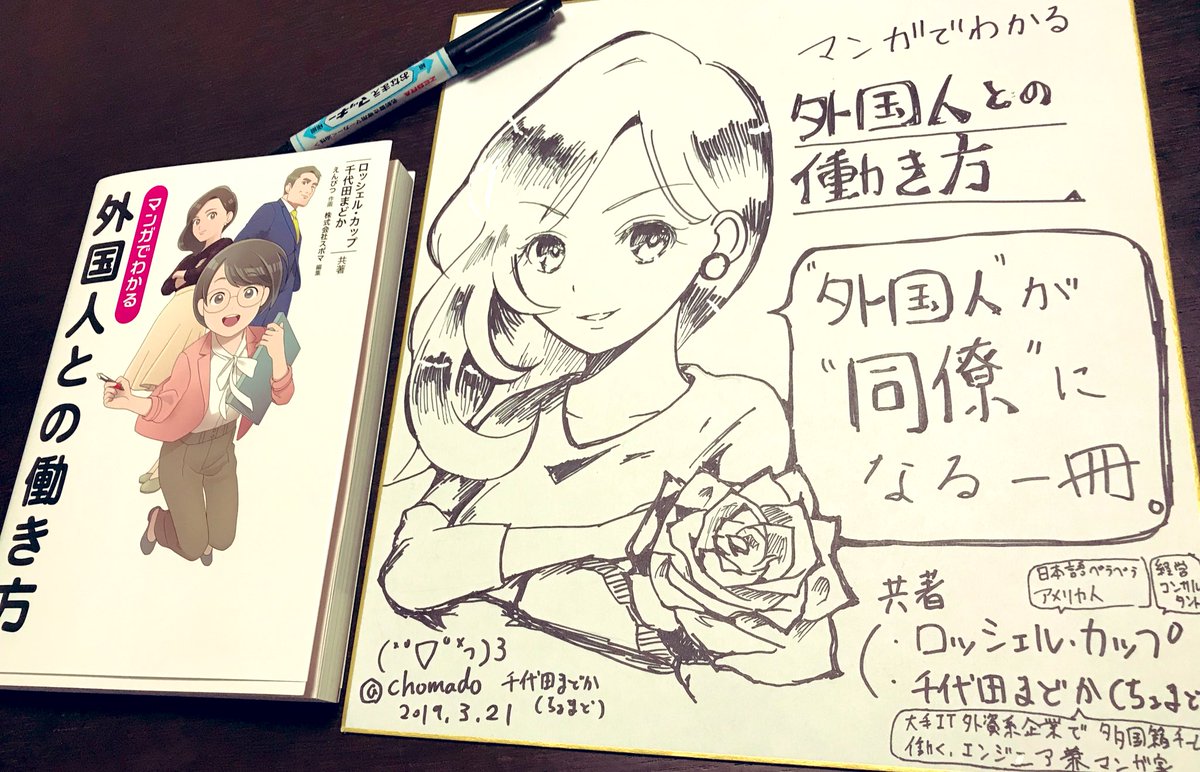 おなまえ マッキー
マンガでわかる
外国人との働き方
ロッシェル・カップ
千代田まどか
共著
えんぴつ 作画
株式会社スポマ 編集
マンガでわかる
外国人との
働き方
"外国人"が
"同僚"に
なる一冊。
共著
日本語ペラペラ
アメリカ人
経営
コンサル
タント
・ロッシェル・カップ
・千代田まどか(ちょまど
大手IT外資系企業で 多国籍チーム
働く、エンジニア兼マンガ家
@chomado 千代田まどか
(ちょまど)
2019.3.21